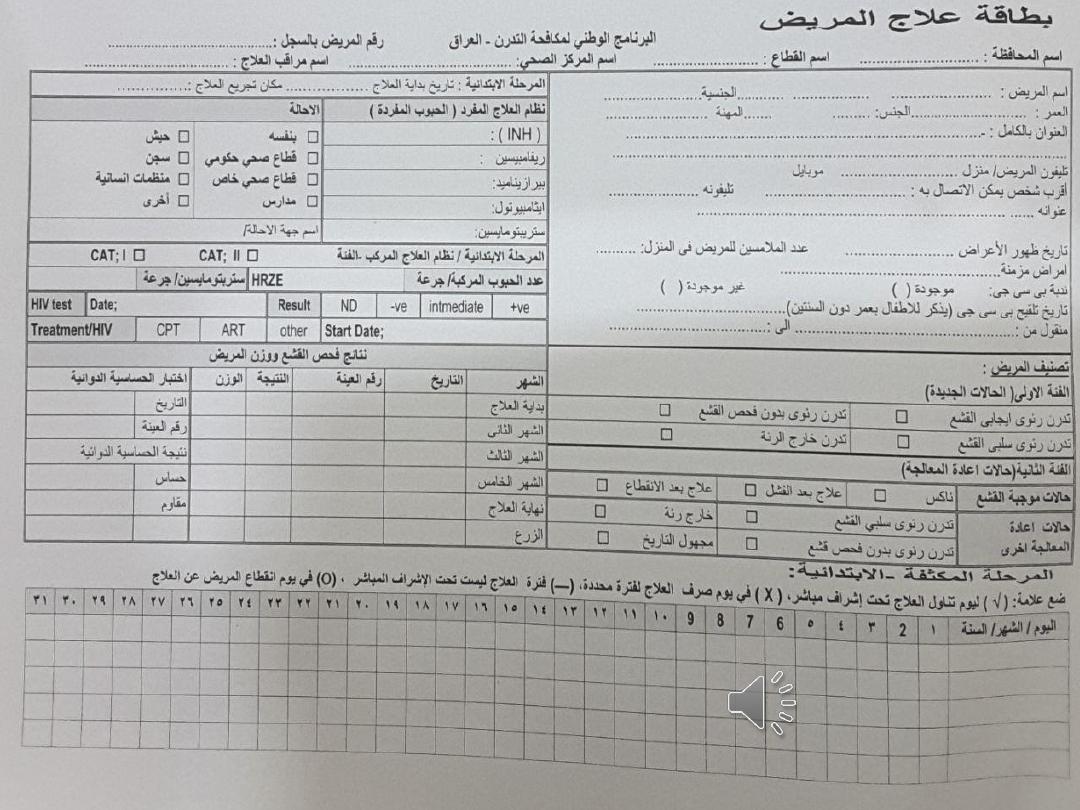 بطاقة علاج المريض
البرنامج الوطني لمكافحة التدرن - العراق
رقم المريض بالسجل :
اسم المحافظة :
اسم القطاع :
اسم المركز الصحي:
اسم مراقب العلاج :
اسم المريض :
الجنسية
العمر :
الجنس:
المهنة
العنوان بالكامل : -
تليفون المريض/ منزل
موبايل
أقرب شخص يمكن الاتصال به :
تليفونه
عنوانه
تاريخ ظهور الأعراض
عدد الملامسين للمريض فى المنزل:
امراض مزمنة
ندبة بى سى جى: موجودة ( ) غير موجودة ( )
تاريخ تلقيح بى سى جى (يذكر للاطفال بعمر دون السنتين)
منقول من :
الى :
تصنيف المريض :
الفئة الاولى( الحالات الجديدة)
تدرن رئوى ايجابى القشع ☐ تدرن رئوى بدون فحص القشع ☐
تدرن رئوى سلبى القشع ☐ تدرن خارج الرئة ☐
الفئة الثانية(حالات اعادة المعالجة)
حالات موجبة القشع ناكس ☐ علاج بعد الفشل ☐ علاج بعد الانقطاع ☐
حالات اعادة المعالجة اخرى
تدرن رئوى سلبي القشع ☐ خارج رئة ☐
تدرن رئوى بدون فحص قشع ☐ مجهول التاريخ ☐
المرحلة الابتدائية : تاريخ بداية العلاج
مكان تجريع العلاج :
نظام العلاج المفرد ( الحبوب المفردة ) الاحالة
( INH ) :
ريفامبيسين :
بيرازيناميد:
ايثامبيوتول:
ستريبتومايسين:
☐ بنفسه ☐ حبش
☐ قطاع صحي حكومي ☐ سجن
☐ قطاع صحي خاص ☐ منظمات انسانية
☐ مدارس ☐ أخرى
اسم جهة الاحالة/
المرحلة الابتدائية / نظام العلاج المركب -الفئة CAT; II ☐ CAT; I ☐
عدد الحبوب المركبة/ جرعة HRZE ستريتومايسين/ جرعة
HIV test Date; Result ND -ve intmediate +ve
Treatment/HIV CPT ART other Start Date;
نتائج فحص القشع ووزن المريض
الشهر التاريخ رقم العينة النتيجة الوزن اختبار الحساسية الدوائية
بداية العلاج التاريخ
الشهر الثانى رقم العينة
الشهر الثالث نتيجة الحساسية الدوائية
الشهر الخامس حساس
نهاية العلاج مقاوم
الزرع
المرحلة المكثفة -الابتدائية:
ضع علامة: (√ ) ليوم تناول العلاج تحت إشراف مباشر، ( X ) في يوم صرف العلاج لفترة محددة، (—) فترة العلاج ليست تحت الإشراف المباشر ، (O) في يوم انقطاع المريض عن العلاج
اليوم / الشهر/ السنة ١ 2 ٣ ٤ ٥ 6 7 8 9 ١٠ ١١ ١٢ ١٣ ١٤ ١٥ ١٦ ١٧ ١٨ ١٩ ٢٠ ٢١ ٢٢ ٢٣ ٢٤ ٢٥ ٢٦ ٢٧ ٢٨ ٢٩ ٣٠ ٣١